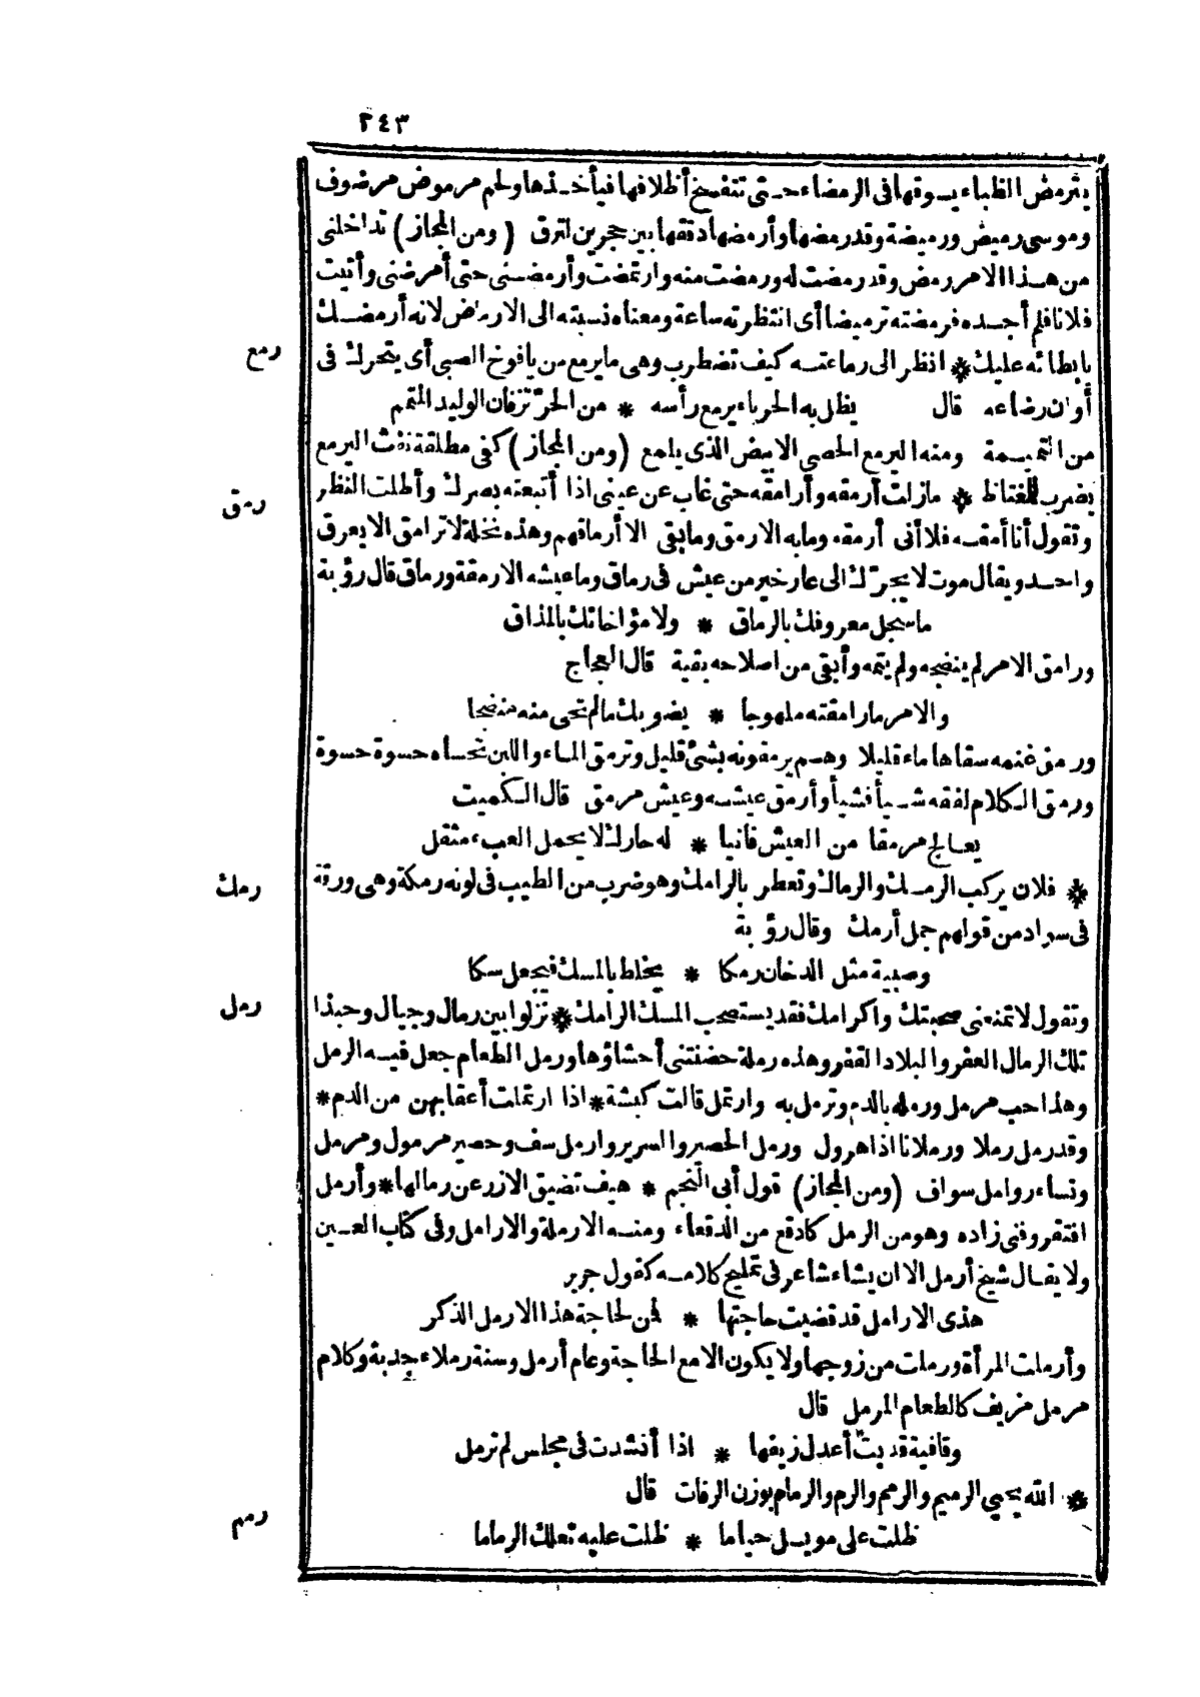 ٢٤٣
يترمض الظباء يسوقها فى الرمضاء حتى تتفسخ أظلافها فيأخذها ولحم مرموض مرضوف
وموسى رميض ورميضة وقد رمضها وأرمضها دققها بين حجرين لترق (ومن المجاز) تداخلنى
من هذا الامر رمض وقد رمضت له ورمضت منه وارتمضت وأرمضنى حتى أمرضنى وأتيت
فلانا فلم أجده فرمضته ترميضا أى انتظرته ساعة ومعناه نسبته الى الارماض لانه أرمضك
رمع
بابطائه عليك * انظر الى رماعته كيف تضطرب وهى ما يرمع من يافوخ الصبى أى يتحرك فى
أوان رضاعه قال يظل به الحرباء يرمع رأسه * من الحرّ نزفان الوليد المتمم
من التميمة ومنه اليرمع الحصى الابيض الذى يلمع (ومن المجاز) كفى مطلقة تفت اليرمع
رمق
يضرب للمغتاظ * مازلت أرمقه وأرامقه حتى غاب عن عينى اذا أتبعته بصرك وأطلت النظر
وتقول أنا أمقه فلا أنى أرمقه وما به الا رمق وما بقى الا أرماقهم وهذه نخلة لا ترامق الا بعرق
واحد ويقال موت لا يجرّك الى عار خير من عيش فى رماق وما عيشه الا رمقة ورماق قال رؤبة
ما سجل معروفك بالرماق * ولا مؤاخاتك بالمذاق
ورامق الامر لم ينضجه ولم يتمه وأبقى من اصلاحه بقية قال العجاج
والامر ما رامقته ملهوجا * يضويك مالم تحى منه منضجا
ورمق غنمه سقاها ماء قليلا وهم يرمقونه بشئ قليل وترمق الماء واللبن تحساه حسوة حسوة
ورمق الكلام لفقه شيأ فشيأ وأرمق عيشه وعيش مرمق قال الكميت
يعالج مرمقا من العيش فانيا * له حارك لا يحمل العبء مثقل
رمك
* فلان يركب الرمك والرماك وتعطر بالرامك وهو ضرب من الطيب فى لونه رمكة وهى ورقة
فى سواد من قولهم جمل أرمك وقال رؤبة
وصبية مثل الدخان رمكا * يخلط بالمسك فيجعل سكا
رمل
وتقول لا تمنعنى صحبتك واكرامك فقد يستصحب المسك الرامك * نزلوا بين رمال وجبال وحبذا
تلك الرمال العفر والبلاد القفر وهذه رملة حضنتنى أحشاؤها ورمل الطعام جعل فيه الرمل
وهذا حب مرمل ورمله بالدم وترمل به وارتمل قالت كبشة * اذا ارتملت أعقابهن من الدم *
وقد رمل رملا ورملانا اذا هرول ورمل الحصير والسرير وارمل سف وحصير مرمول ومرمل
ونساء روامل سواف (ومن المجاز) قول أبى النجم * هيف تضيق الازر عن رمالها * وأرمل
افتقر وفنى زاده وهو من الرمل كادقع من الدقعاء ومنه الارملة والارامل وفى كتاب العين
ولا يقال شيخ أرمل الا ان يشاء شاعر فى تمليح كلامه كقول جرير
هذى الارامل قد قضيت حاجتها * فمن لحاجة هذا الارمل الذكر
وأرملت المرأة ورملت من زوجها ولا يكون الا مع الحاجة وعام أرمل وسنة رملاء جدبة وكلام
مرمل مزيف كالطعام المرمل قال
وقافية قد بتّ أعدل زيفها * اذا أنشدت فى مجلس لم ترمل
* الله يحيى الرميم والرمم والرم والرمام بوزن الرفات قال
رمم
ظلت على مويسل حياما * ظلت عليه تعلك الرماما